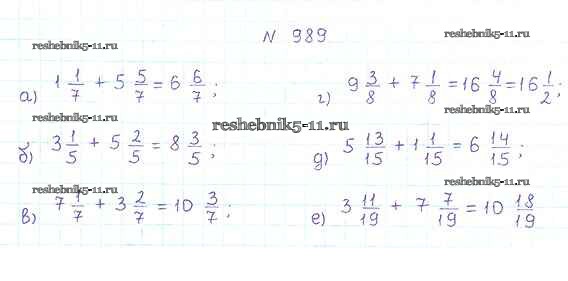 N 989
reshebnik5-11.ru
reshebnik5-11.ru
а) 1 1/7 + 5 5/7 = 6 6/7 ;
г) 9 3/8 + 7 1/8 = 16 4/8 = 16 1/2 ;
reshebnik5-11.ru
reshebnik5-11.ru
б) 3 1/5 + 5 2/5 = 8 3/5 ;
д) 5 13/15 + 1 1/15 = 6 14/15 ;
reshebnik5-11.ru
reshebnik5-11.ru
reshebnik5-11.ru
в) 7 1/7 + 3 2/7 = 10 3/7 ;
е) 3 11/19 + 7 7/19 = 10 18/19